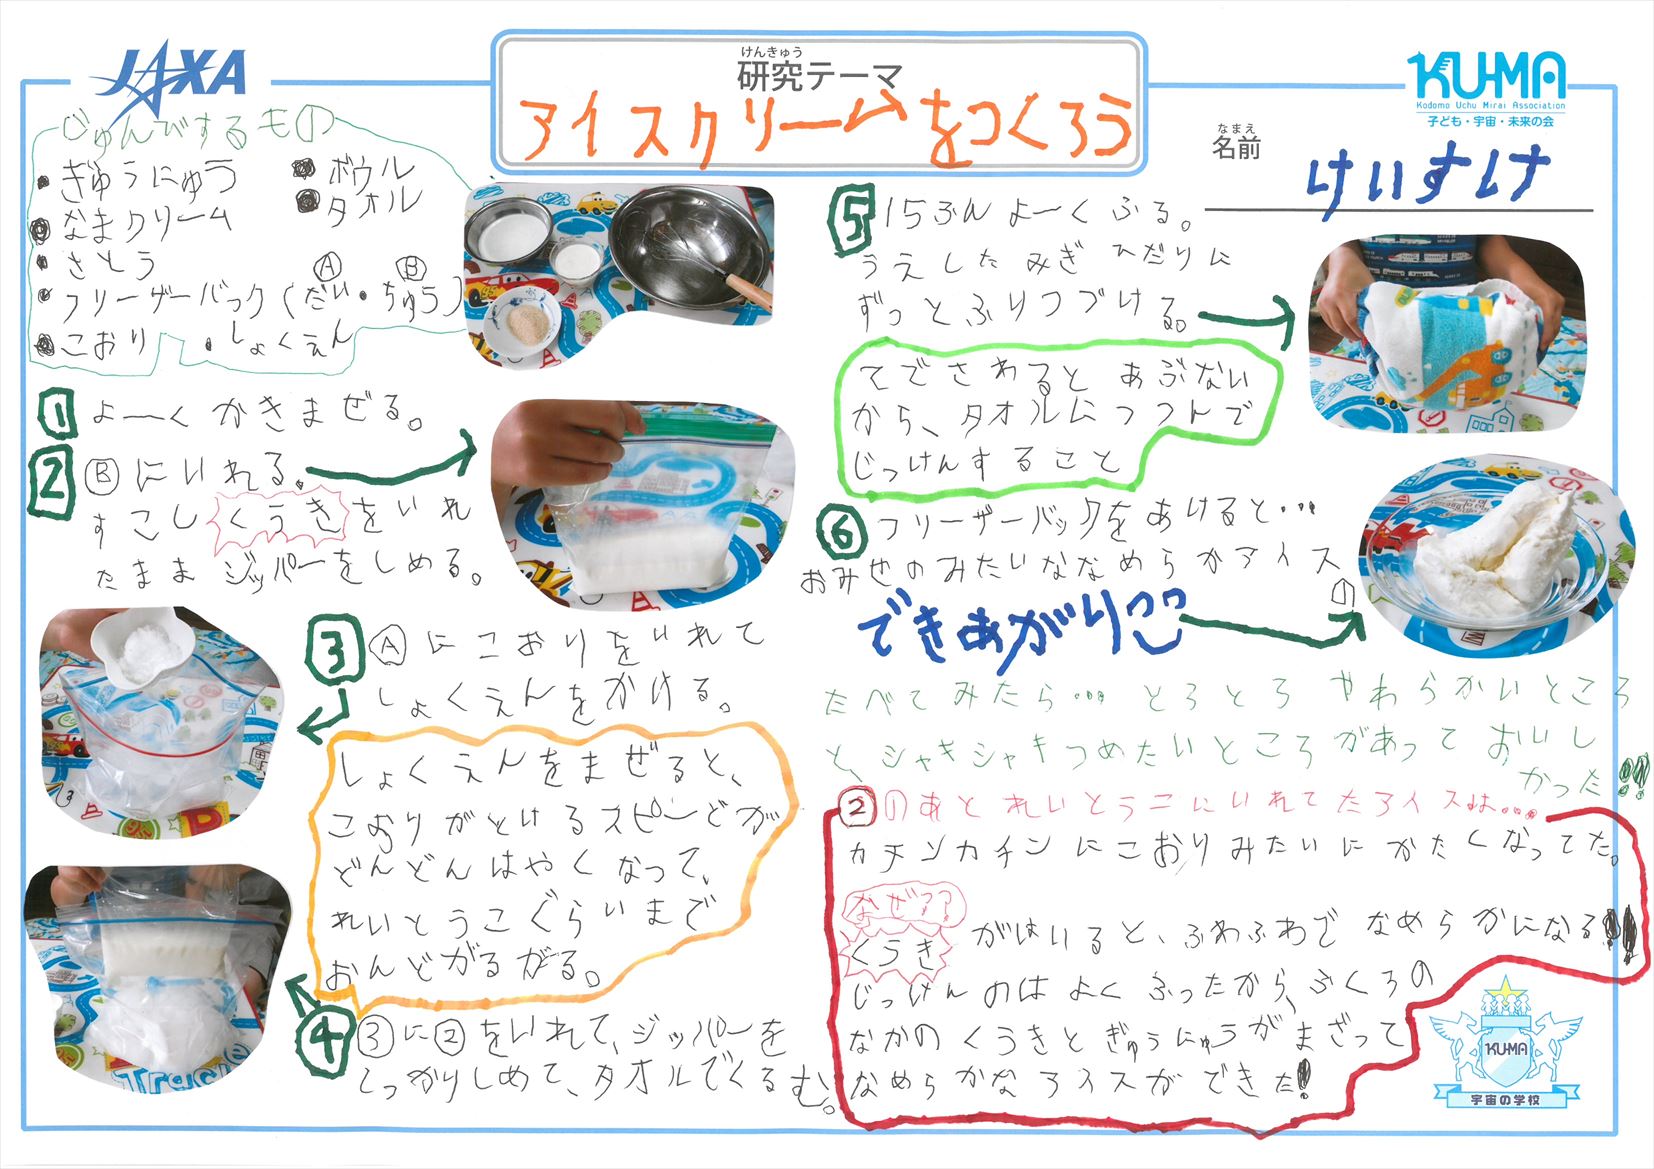 JAXA
けんきゅう
研究テーマ
アイスクリームをつくろう
KU-MA
Kodomo Uchu Mirai Association
子ども・宇宙・未来の会
なまえ
名前
けいすけ
じゅんびするもの
・ぎゅうにゅう
・なまクリーム
・さとう
・フリーザーバック(だい・ちゅう)
Ⓐ Ⓑ
・こおり ・しょくえん
・ボウル
・タオル
1 よーくかきまぜる。
2 Ⓑにいれる。
すこしくうきをいれ
たままジッパーをしめる。
3 Ⓐにこおりをいれて
しょくえんをかける。
しょくえんをまぜると、
こおりがとけるスピードが
どんどんはやくなって、
れいとうこぐらいまで
おんどがるがる。
4 ③に②をいれて、ジッパーを
しっかりしめて、タオルでくるむ。
5 15ふんよーくふる。
うえしたみぎひだりに
ずっとふりつづける。
てでさわるとあぶない
から、タオルムつつんで
じっけんすること
6 フリーザーバックをあけると…
おみせのみたいななめらかアイス
できあがり
たべてみたら… とろとろやわらかいところ
と、シャキシャキつめたいところがあっておいし
かった!!
②のあとれいとうこにいれてたアイスは…
カチンカチンにこおりみたいにかたくなってた。
なぜ??
くうきがはいると、ふわふわでなめらかになる!!
じっけんのはよくふったから、ふくろの
なかのくうきとぎゅうにゅうがまざって
なめらかなアイスができた!
KU-MA
宇宙の学校